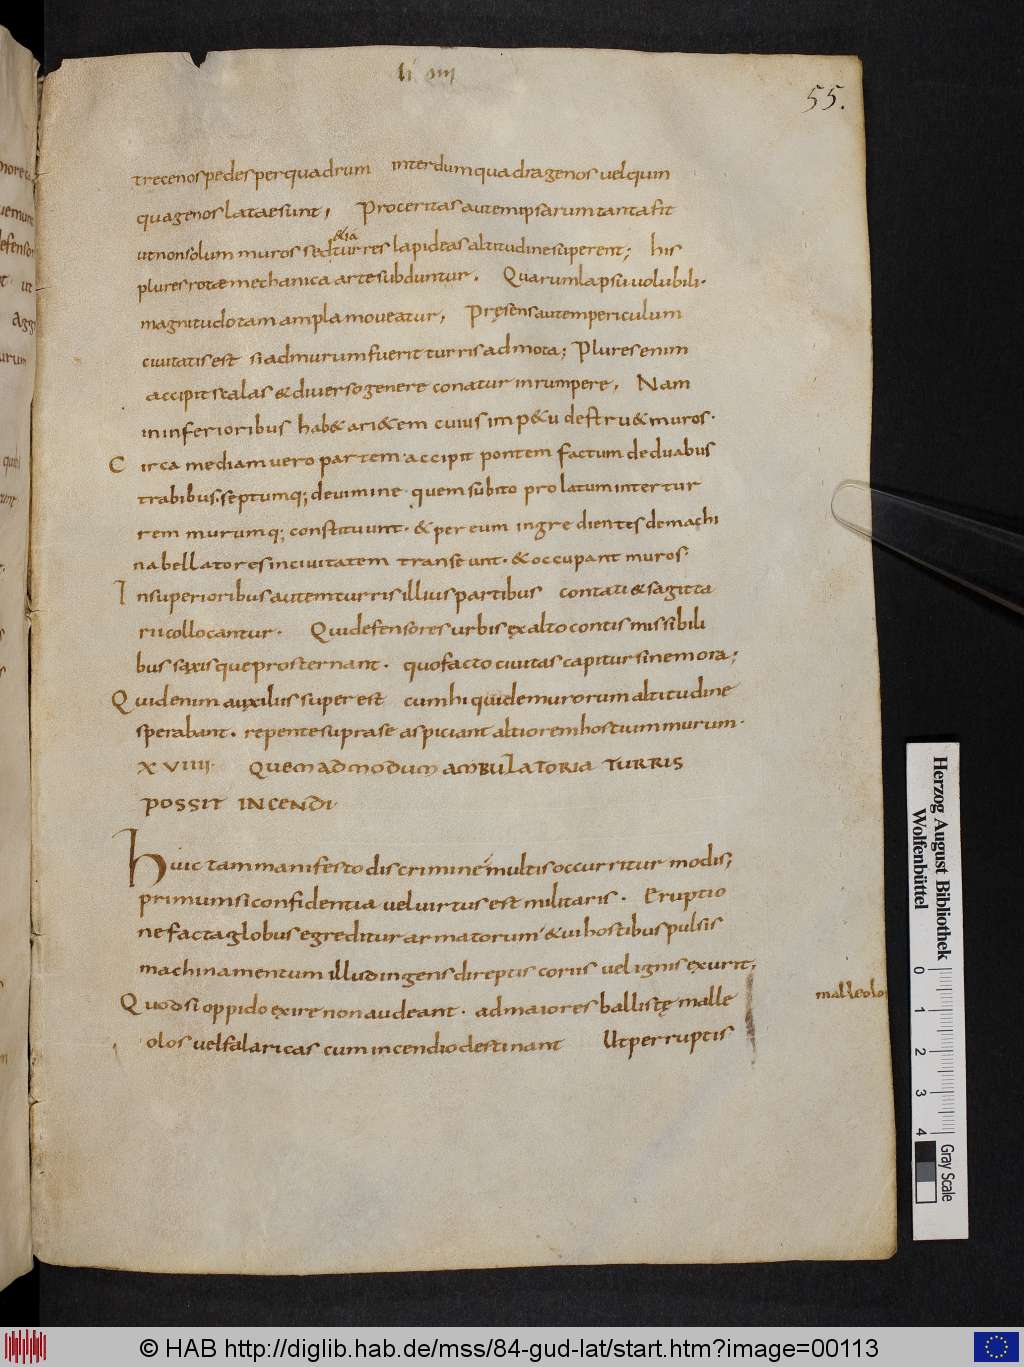 li IIII
55.
trecenos pedes per quadrum interdum quadragenos vel quin
quagenos latae sunt, Proceritas autem ipsarum tanta fit
ut non solum muros sed turres lapideas altitudine superent; his
&iã
plures rotae mechanica arte subduntur. Quarum lapsu volubili.
magnitudo tam ampla moveatur, Pręsens autem periculum
civitatis est si ad murum fuerit turris admota; Plures enim
accipit scalas & diverso genere conatur inrumpere, Nam
in inferioribus hab& ari&em cuius imp&u destru& muros.
Circa mediam vero partem accipit pontem factum de duabus
trabibus. septumq; de vimine quem subito prolatum inter tur
rem murumq; constituunt. & per eum ingredientes de machi
na bellatores in civitatem transeunt. & occupant muros.
In superioribus autem turris illius partibus contati & sagitta
rii collocantur. Qui defensores urbis ęx alto contis missibili
bus saxisque prosternant. quo facto civitas capitur sine mora;
Quid enim auxiliis superest cum hi qui de murorum altitudine
sperabant. repente supra se aspiciant altiorem hostium murum.
XVIIII. QUEMADMODUM AMBULATORIA TURRIS
POSSIT INCENDI.
Huic tam manifesto discrimine multis occurritur modis,
primum si confidentia vel virtus est militaris. Eruptio
ne facta globus egreditur armatorum & vi hostibus pulsis
machinamentum illud ingens direptis coriis vel ignis exurit,
Quod si oppido exire non audeant. ad maiores ballistę malle
malleolo
olos vel falaricas cum incendio destinant Ut perruptis
Herzog August Bibliothek
Wolfenbüttel
0 1 2 3 4
Gray Scale
© HAB http://diglib.hab.de/mss/84-gud-lat/start.htm?image=00113